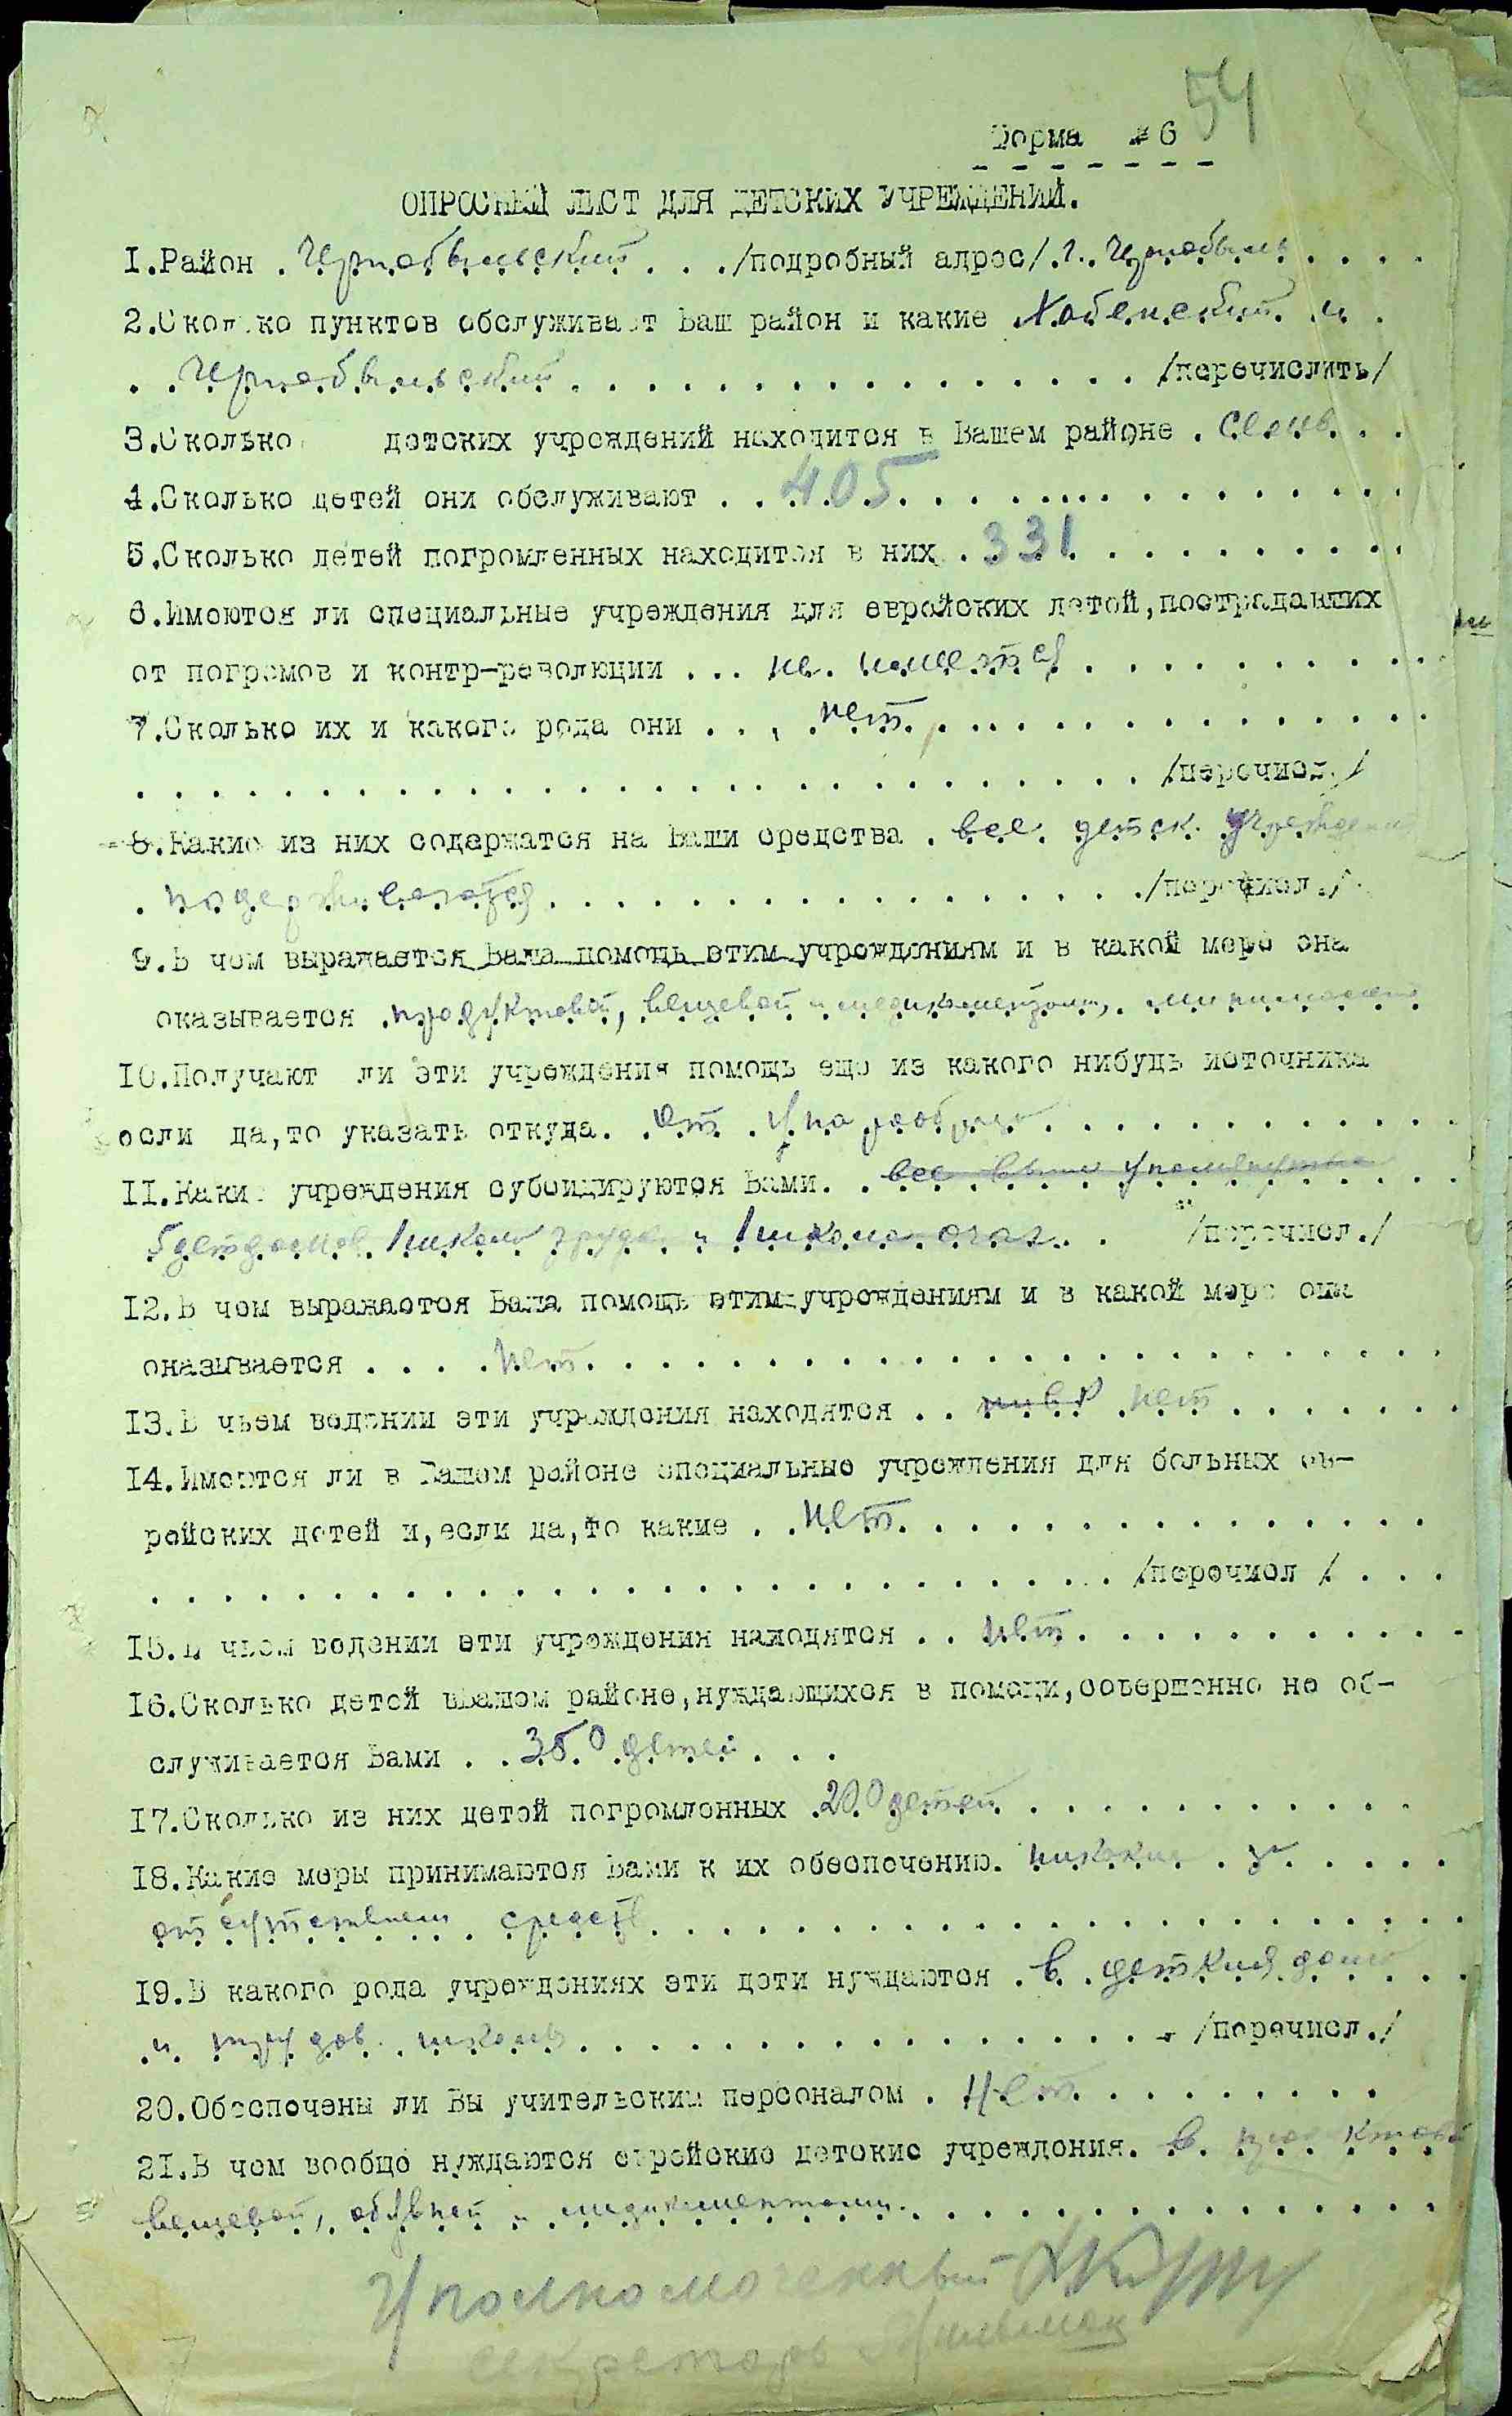 54
Форма № 6
ОПРОСНЫЙ ЛИСТ ДЛЯ ДЕТСКИХ УЧРЕЖДЕНИЙ.
1.Район . Чернобыльский . . ./подробный адрес/.г. Чернобыль . . . .
2.Сколько пунктов обслуживает Ваш район и какие Хабенский и .
. . Чернобыльский . . . . . . . . . . . . . . . . /перечислить/
3.Сколько детских учреждений находится в Вашем районе . семь . .
4.Сколько детей они обслуживают . . 405 . . . . . . . . . . . . . .
5.Сколько детей погромленных находится в них . 331 . . . . . . . . . .
6.Имеются ли специальные учреждения для еврейских детей,пострадавших
от погромов и контр-революции . . . не имеется . . . . . . . . . .
7.Сколько их и какого рода они . . . нет . . . . . . . . . . . . . .
. . . . . . . . . . . . . . . . . . . . . . . . . . . . /перечисл./
8.Какие из них содержатся на Ваши средства . все детск. учреждения
. подерживаются . . . . . . . . . . . . . . . . ./перечисл./
9.В чем выражается Ваша помощь этим учреждениям и в какой мере она
оказывается продуктовой, вещевой и медикаментами,
10.Получают ли эти учреждения помощь еще из какого нибудь источника
если да,то указать откуда. От Упнаробраза . . . . . . . . . . . .
11.Какие учреждения субсидируются Вами. . все выше упомянутые
5 детдомов 1 школа труда и 1 школа очаг . . /перечисл./
12.В чем выражается Ваша помощь этим учреждениям и в какой мере она
оказывается . . . . нет . . . . . . . . . . . . . . . . . . . . . .
13.В чьем ведении эти учреждения находятся . . нет . . . . . . .
14.Имеются ли в Вашем районе специальные учреждения для больных ев-
рейских детей и,если да,то какие . . нет . . . . . . . . . . . . . . .
. . . . . . . . . . . . . . . . . . . . . . . . . . . /перечисл / . . .
15.В чьем ведении эти учреждения находятся . . нет . . . . . . . . . . .
16.Сколько детей вВашем районе,нуждающихся в помощи,совершенно не об-
служивается Вами . . 350 детей . . .
17.Сколько из них детей погромленных 200 детей . . . . . . . . . . . .
18.Какие меры принимаются Вами к их обеспечению. никакие за . . . . .
отсутствием средств . . . . . . . . . . . . . . . . . . . . . .
19.В какого рода учреждениях эти дети нуждаются . в детския дома . .
и трудов. школы . . . . . . . . . . . . . . . . . /перечисл./
20.Обеспечены ли Вы учительским персоналом . Нет . . . . . . . . .
21.В чем вообще нуждаются еврейские детские учреждения. в продуктовой
вещевой, обувной и медикаментами. . . . . . . . . . . . . . . .
Уполномоченный
Секретарь